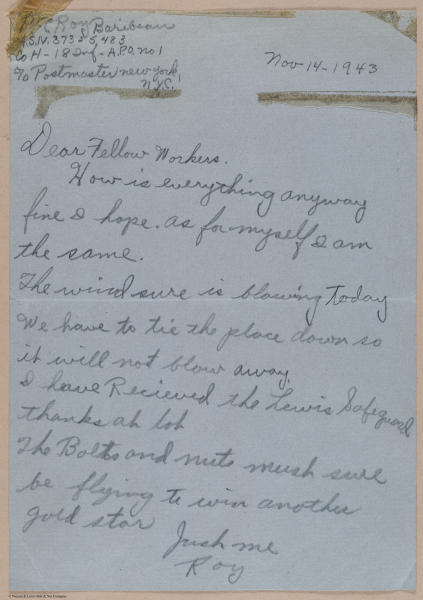 Pvt. Roy Baribeau
A.S.N. 37325483
Co H - 18 Inf - A.P.O. no 1
To Postmaster new york,
N.Y.C.
Nov 14 - 1943
Dear Fellow Workers.
How is everything anyway
fine I hope. as for myself I am
the same.
The wind sure is blowing today
We have to tie the place down so
it will not blow away.
I have Recieved the Lewis Safeguard
thanks ah loh
The Bolts and nuts mush sure
be flying to win another
gold star
Jush me
Roy